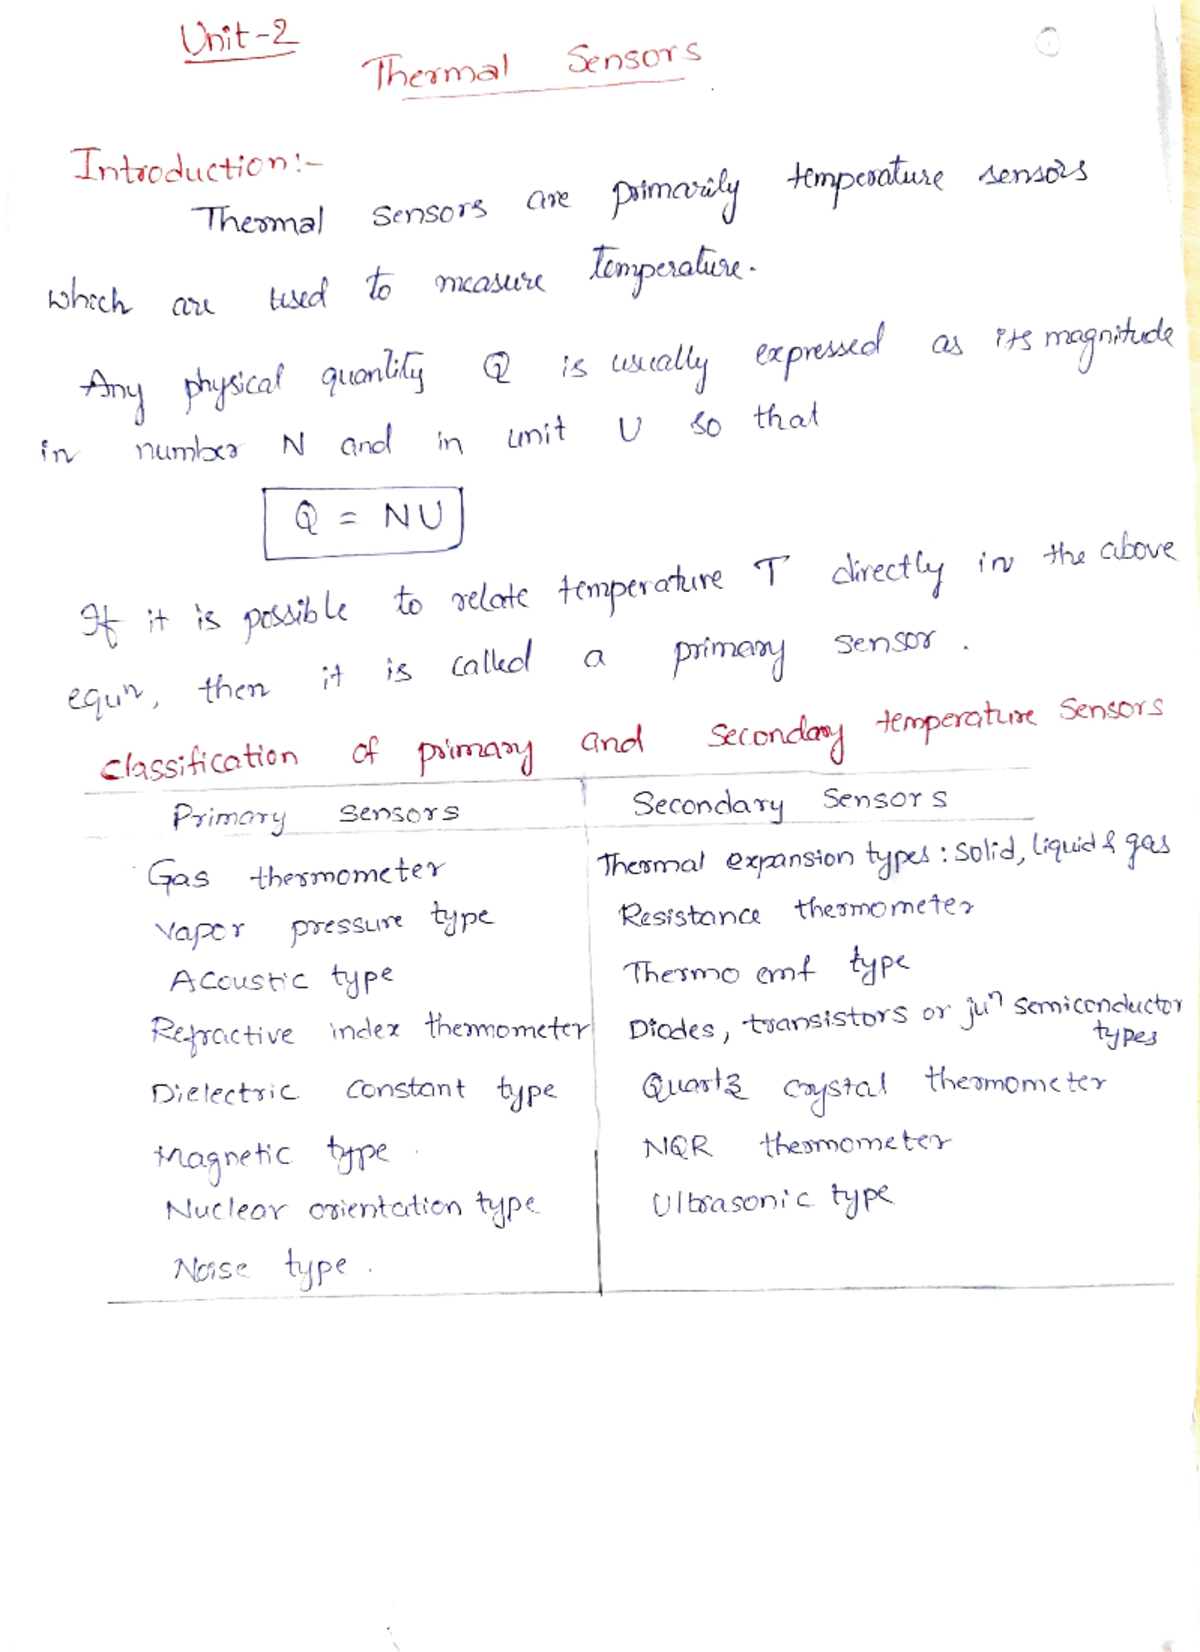 Unit-2
Thermal Sensors
Introduction:-
Thermal sensors are primarily temperature sensors
which are used to measure temperature.
Any physical quantity Q is usually expressed as its magnitude
in number N and in unit U so that
Q = NU
If it is possible to relate temperature T directly in the above
equn, then it is called a primary sensor.
Classification of primary and Secondary temperature Sensors
Primary Sensors	Secondary Sensors
Gas thermometer	Thermal expansion types: Solid, liquid & gas
Vapor pressure type	Resistance thermometer
Acoustic type	Thermo emf type
Refractive index thermometer	Diodes, transistors or jun semiconductor types
Dielectric constant type	Quartz crystal thermometer
Magnetic type.	NQR thermometer
Nuclear orientation type	Ultrasonic type
Noise type.